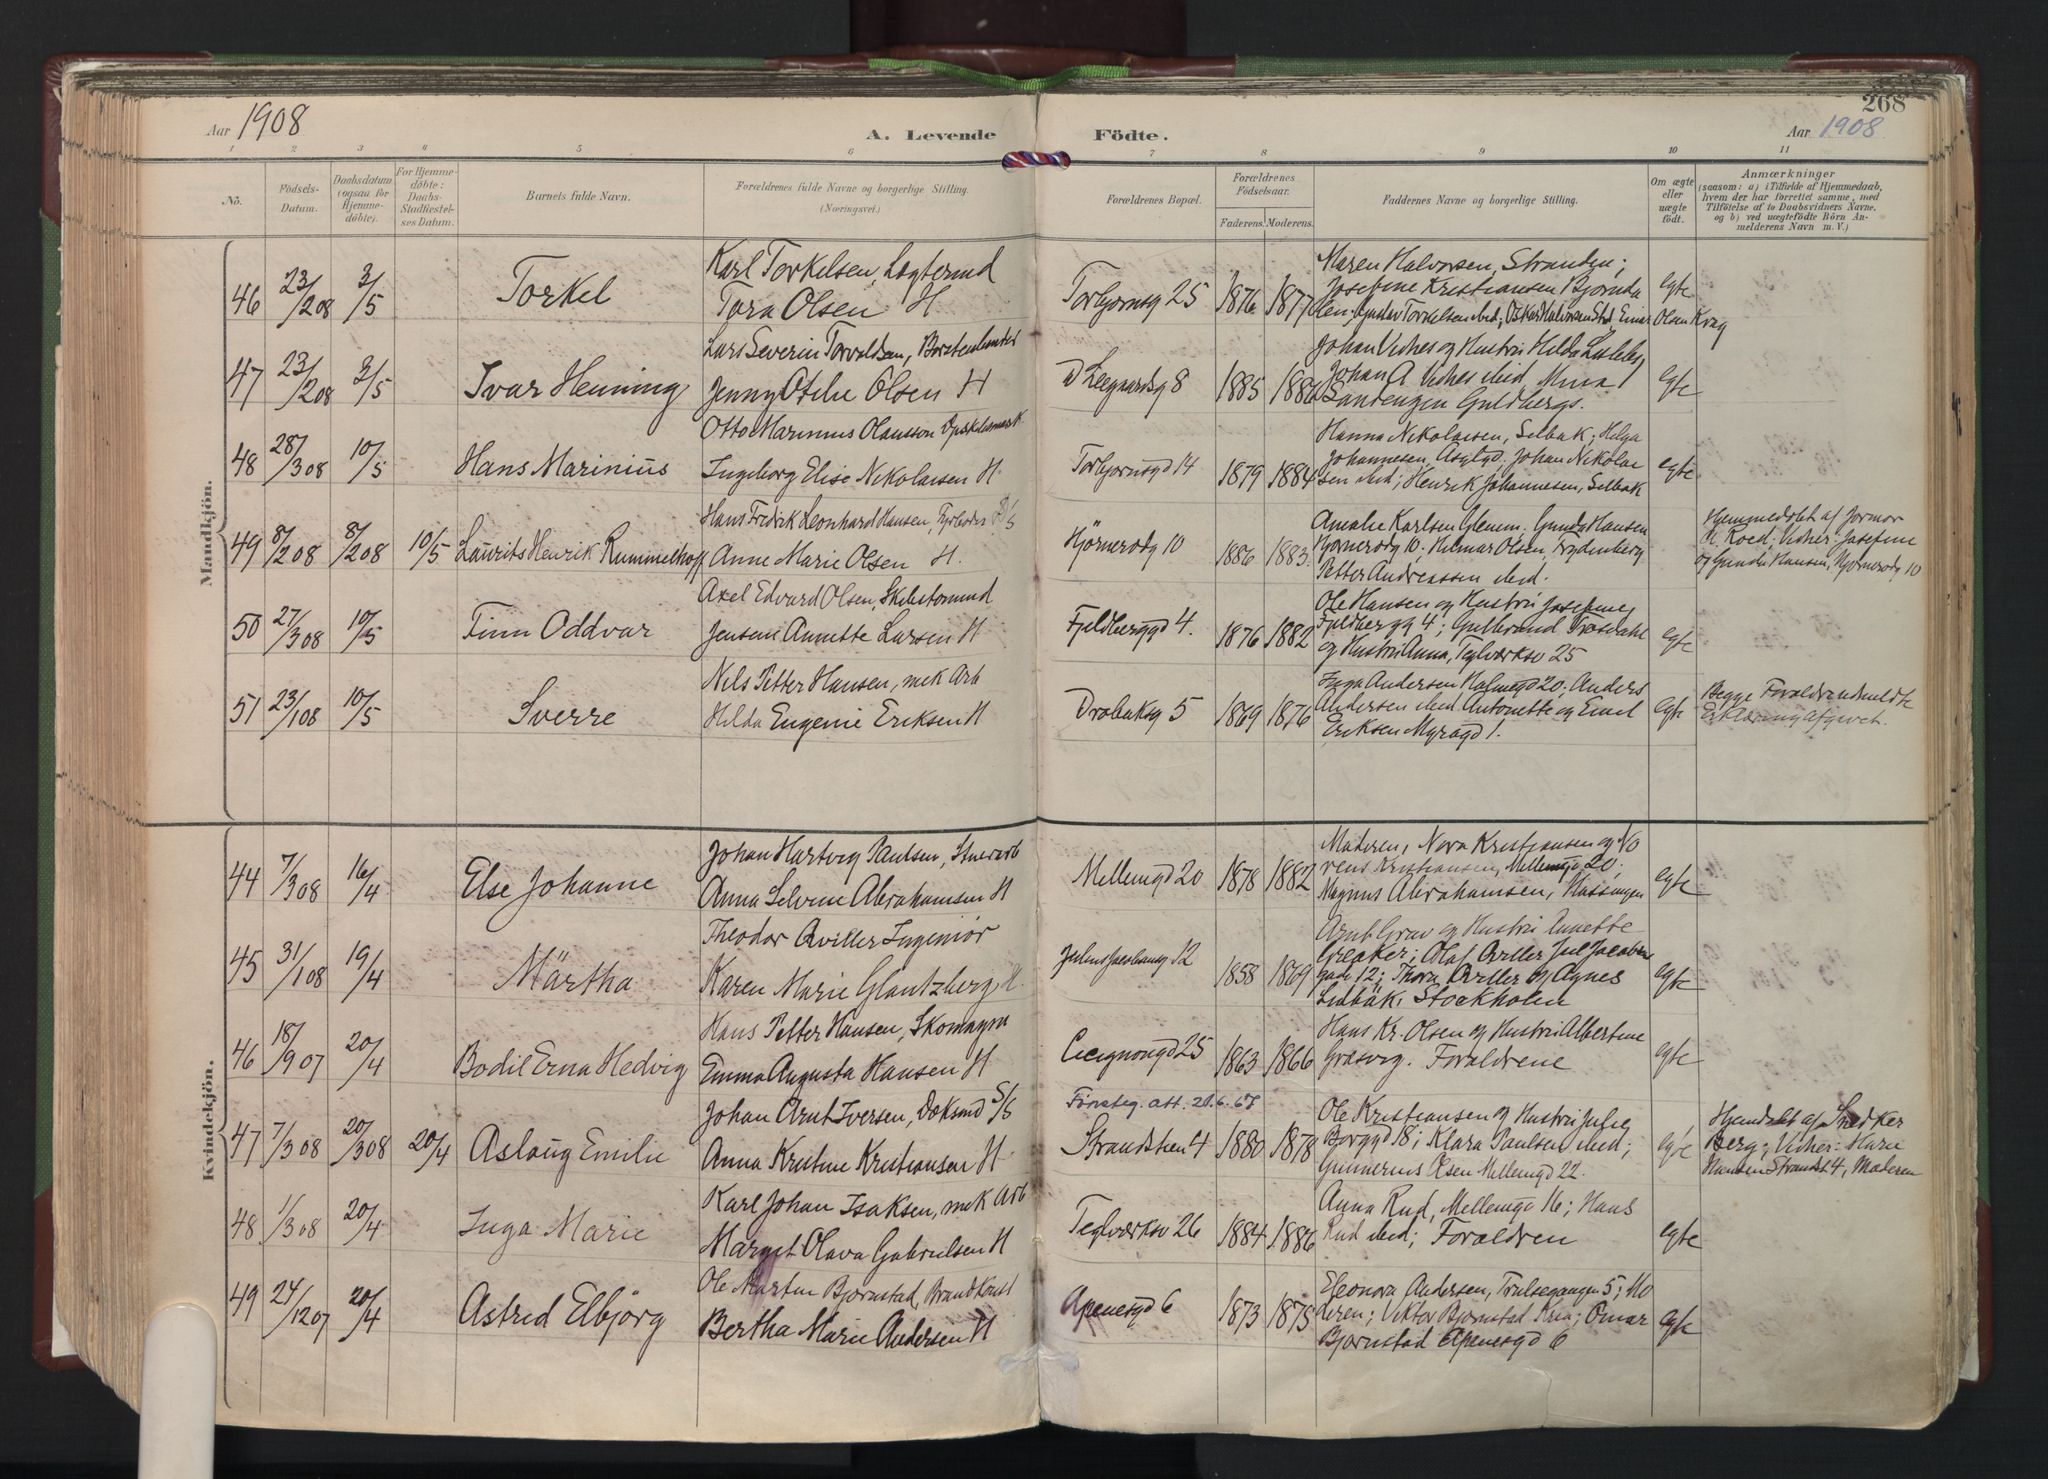 268
Aar 1908
A. Levende Födte.
Aar 1908
1 2 3 4 5 6 7 8 9 10 11
No.
Födsels-
Datum.
Daabsdatum
(ogsaa for
Hjemme-
döbte).
For Hjemme-
döbte:
Daabs-
Stadfæstel-
ses Datum.
Barnets fulde Navn.
Forældrenes fulde Navne og borgerlige Stilling.
(Næringsvei.)
Forældrenes Bopæl.
Forældrenes
Födselsaar.
Faderens. Moderens.
Faddernes Navne og borgerlige Stilling.
Om ægte
eller
uægte
født.
Anmærkninger
(saasom: a) i Tilfælde af Hjemmedaab,
hvem der har forrettet samme, med
Tilföielse af to Daabsvidners Navne,
og b) ved uægtefödte Börn An-
melderens Navn m. V.)
Mandkjön.
46 23/2 08 3/5 Torkel
Karl Torkelsen, Lægtermd
Tora Olsen H
Torbjornsg 25 1876 1877
Maren Halvorsen, Stranden;
Josefine Kristiansen Bjornda
len; Gustav Torkelsen ibid; Oskar Halvorsen Std, Einar Olsen Krag
egte
47 23/2 08 3/5 Ivar Henning
Lars Severin Torvaldsen, Borstenbinder
Jenny Otelie Olsen H
D Leegaardsg 8 1885 1886
Johan Vidnes og Hustru Hilda
Johan A Vidnes ibid, Mina
Sandengen Guldbergs.
egte
48 28/3 08 10/5 Hans Marinius
Otto Marinius Olausson
Ingeborg Elise Nikolaisen H
Torbjornsgd 14 1879 1884
Hanna Nikolaisen, Selbak; Helga
Johannesen, Asylgd. Johan Nikolai
sen ibid; Henrik Johannesen, Selbak
egte
49 8/2 08 8/2 08 10/5 Laurits Henrik Rummelhoff
Hans Fredrik Leonhard Hansen, Fyrbøder D/S
Anne Marie Olsen H.
Hjørnerødg 10 1886 1883
Amalie Karlsen Glenem. Gunda Hansen
Hjornerødg 10; Hilmar Olsen, Frydenberg
Petter Andreassen ibid.
Hjemmedøbt af Jormor
K. Roed; Vidner: Josefine
og Gunda Hansen, Hjornerødg 10
50 27/3 08 10/5 Finn Oddvar
Axel Edvard Olsen, Skibstømmd
Jensine Annette Larsen H
Fjeldberggd 4. 1876 1882
Ole Hansen og Hustru Josefine,
Fjeldbergg 4; Gulbrand Trosdahl
og Hustru Anna, Teglværksv 25
egte
51 23/1 08 10/5 Sverre
Nils Petter Hansen, mek Arb
Hilda Eugenie Eriksen H
Drobaksg 5 1869 1876
Inga Andersen Halmegd 20; Anders
Andersen ibid Antonette og Emil
Eriksen Myragd 1.
egte
Begge Foraldre
Erklæring afgivet.
Kvindekjön.
44 7/3 08 16/4 Else Johanne
Johan Hartvig Paulsen, Stuerarb
Anna Selvine Abrahamsen H
Mellemgd 20 1878 1882
Moderen, Nora Kristiansen og No
rens Kristiansen, Mellemgd 20;
Magnus Abrahamsen, Hassingen
egte
45 31/1 08 19/4 Märtha
Theodor Aviller Ingeniör
Karen Marie Glantzberg H.
Julius Jacobseng 12 1858 1869
Arnt Grav og Hustru Annette
Greaker; Olaf Aviller Jul Jacobsens
gade 12; Thora Aviller og Agnes
Lidbäk, Stockholm
egte
46 18/9 07 20/4 Bodil Erna Hedvig
Hans Petter Hansen, Skomagm
Emma Augusta Hansen H
Cicignongd 25 1863 1866
Hans Kr. Olsen og Hustru Albertine
Græsvig. Foraldrene
egte
Fönsteg. att. 21.6.67
47 7/3 08 20/3 08 20/4 Aslaug Emilie
Johan Arnt Iversen, Dæksmd S/S
Anna Kristine Kristiansen H
Strandstien 4 1880 1878
Ole Kristiansen og Hustru Julie,
Borggd 18; Klara Paulsen ibid;
Gunnerius Olsen Mellemgd 22.
egte
Hjemdøbt af Snedker
Berg; Vidner: Marie
Hansen Strandst 4, Moderen
48 1/3 08 20/4 Inga Marie
Karl Johan Isaksen, mek Arb
Margit Olava Gabrielsen H
Teglværksv 26 1884 1886
Anna Rud, Mellemgd 16; Hans
Rud ibid; Foraldren
egte
49 24/12 07 20/4 Astrid Elbjörg
Ole Martin Bjørnstad, Brandkonst
Bertha Marie Andersen H
Apenesgd 6 1873 1875
Eleonora Andersen, Trulsegangen 5; Mo
deren; Viktor Bjørnstad Kria; Omar
Bjornstad Apenesgd 6
egte